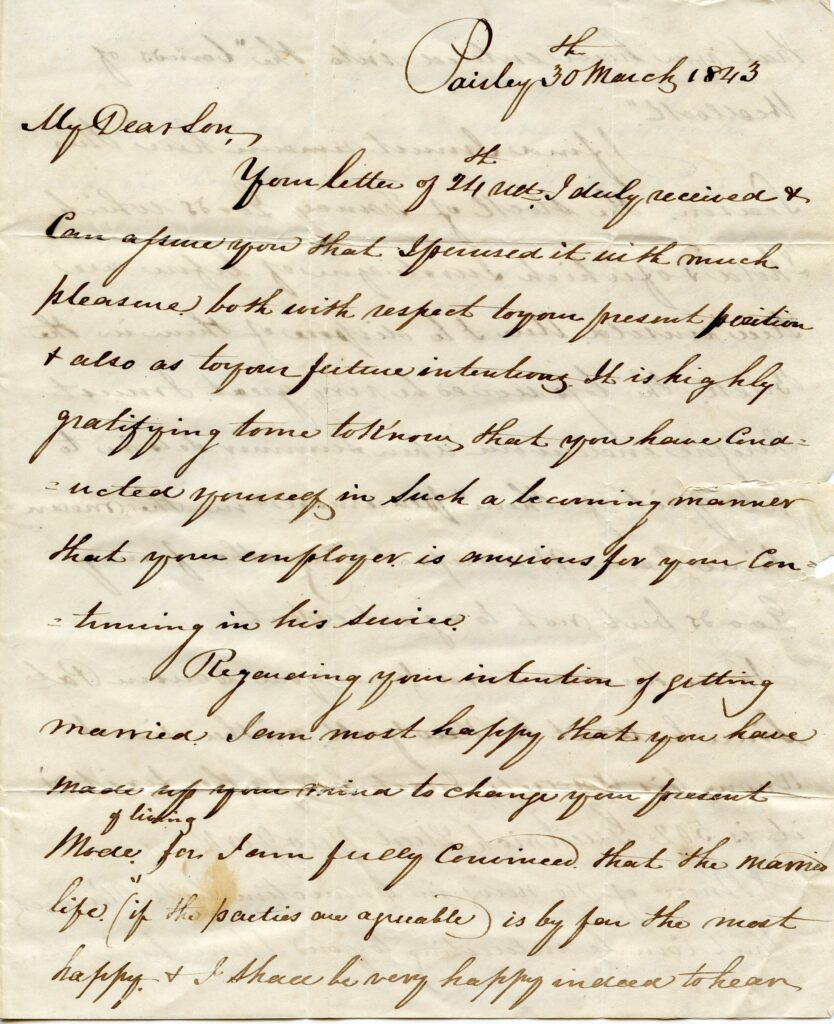 Paisley 30th March 1843
My Dear Son,
Your letter of 24th ult. I duly received &
Can assure you that I perused it with much
pleasure, both with respect to your present position
& also as to your future intentions It is highly
gratifying to me to know, that you have Cond=
=ucted yourself, in such a becoming manner
that your employer is anxious for your Con=
=tinuing in his Service.
Regarding your intention of getting
married. I am most happy that you have
made up your mind to change your present
of living
Mode, for I am fully Convinced that the married
life, (if the parties are agreable) is by far the most
happy. & I shall be very happy indeed to hear